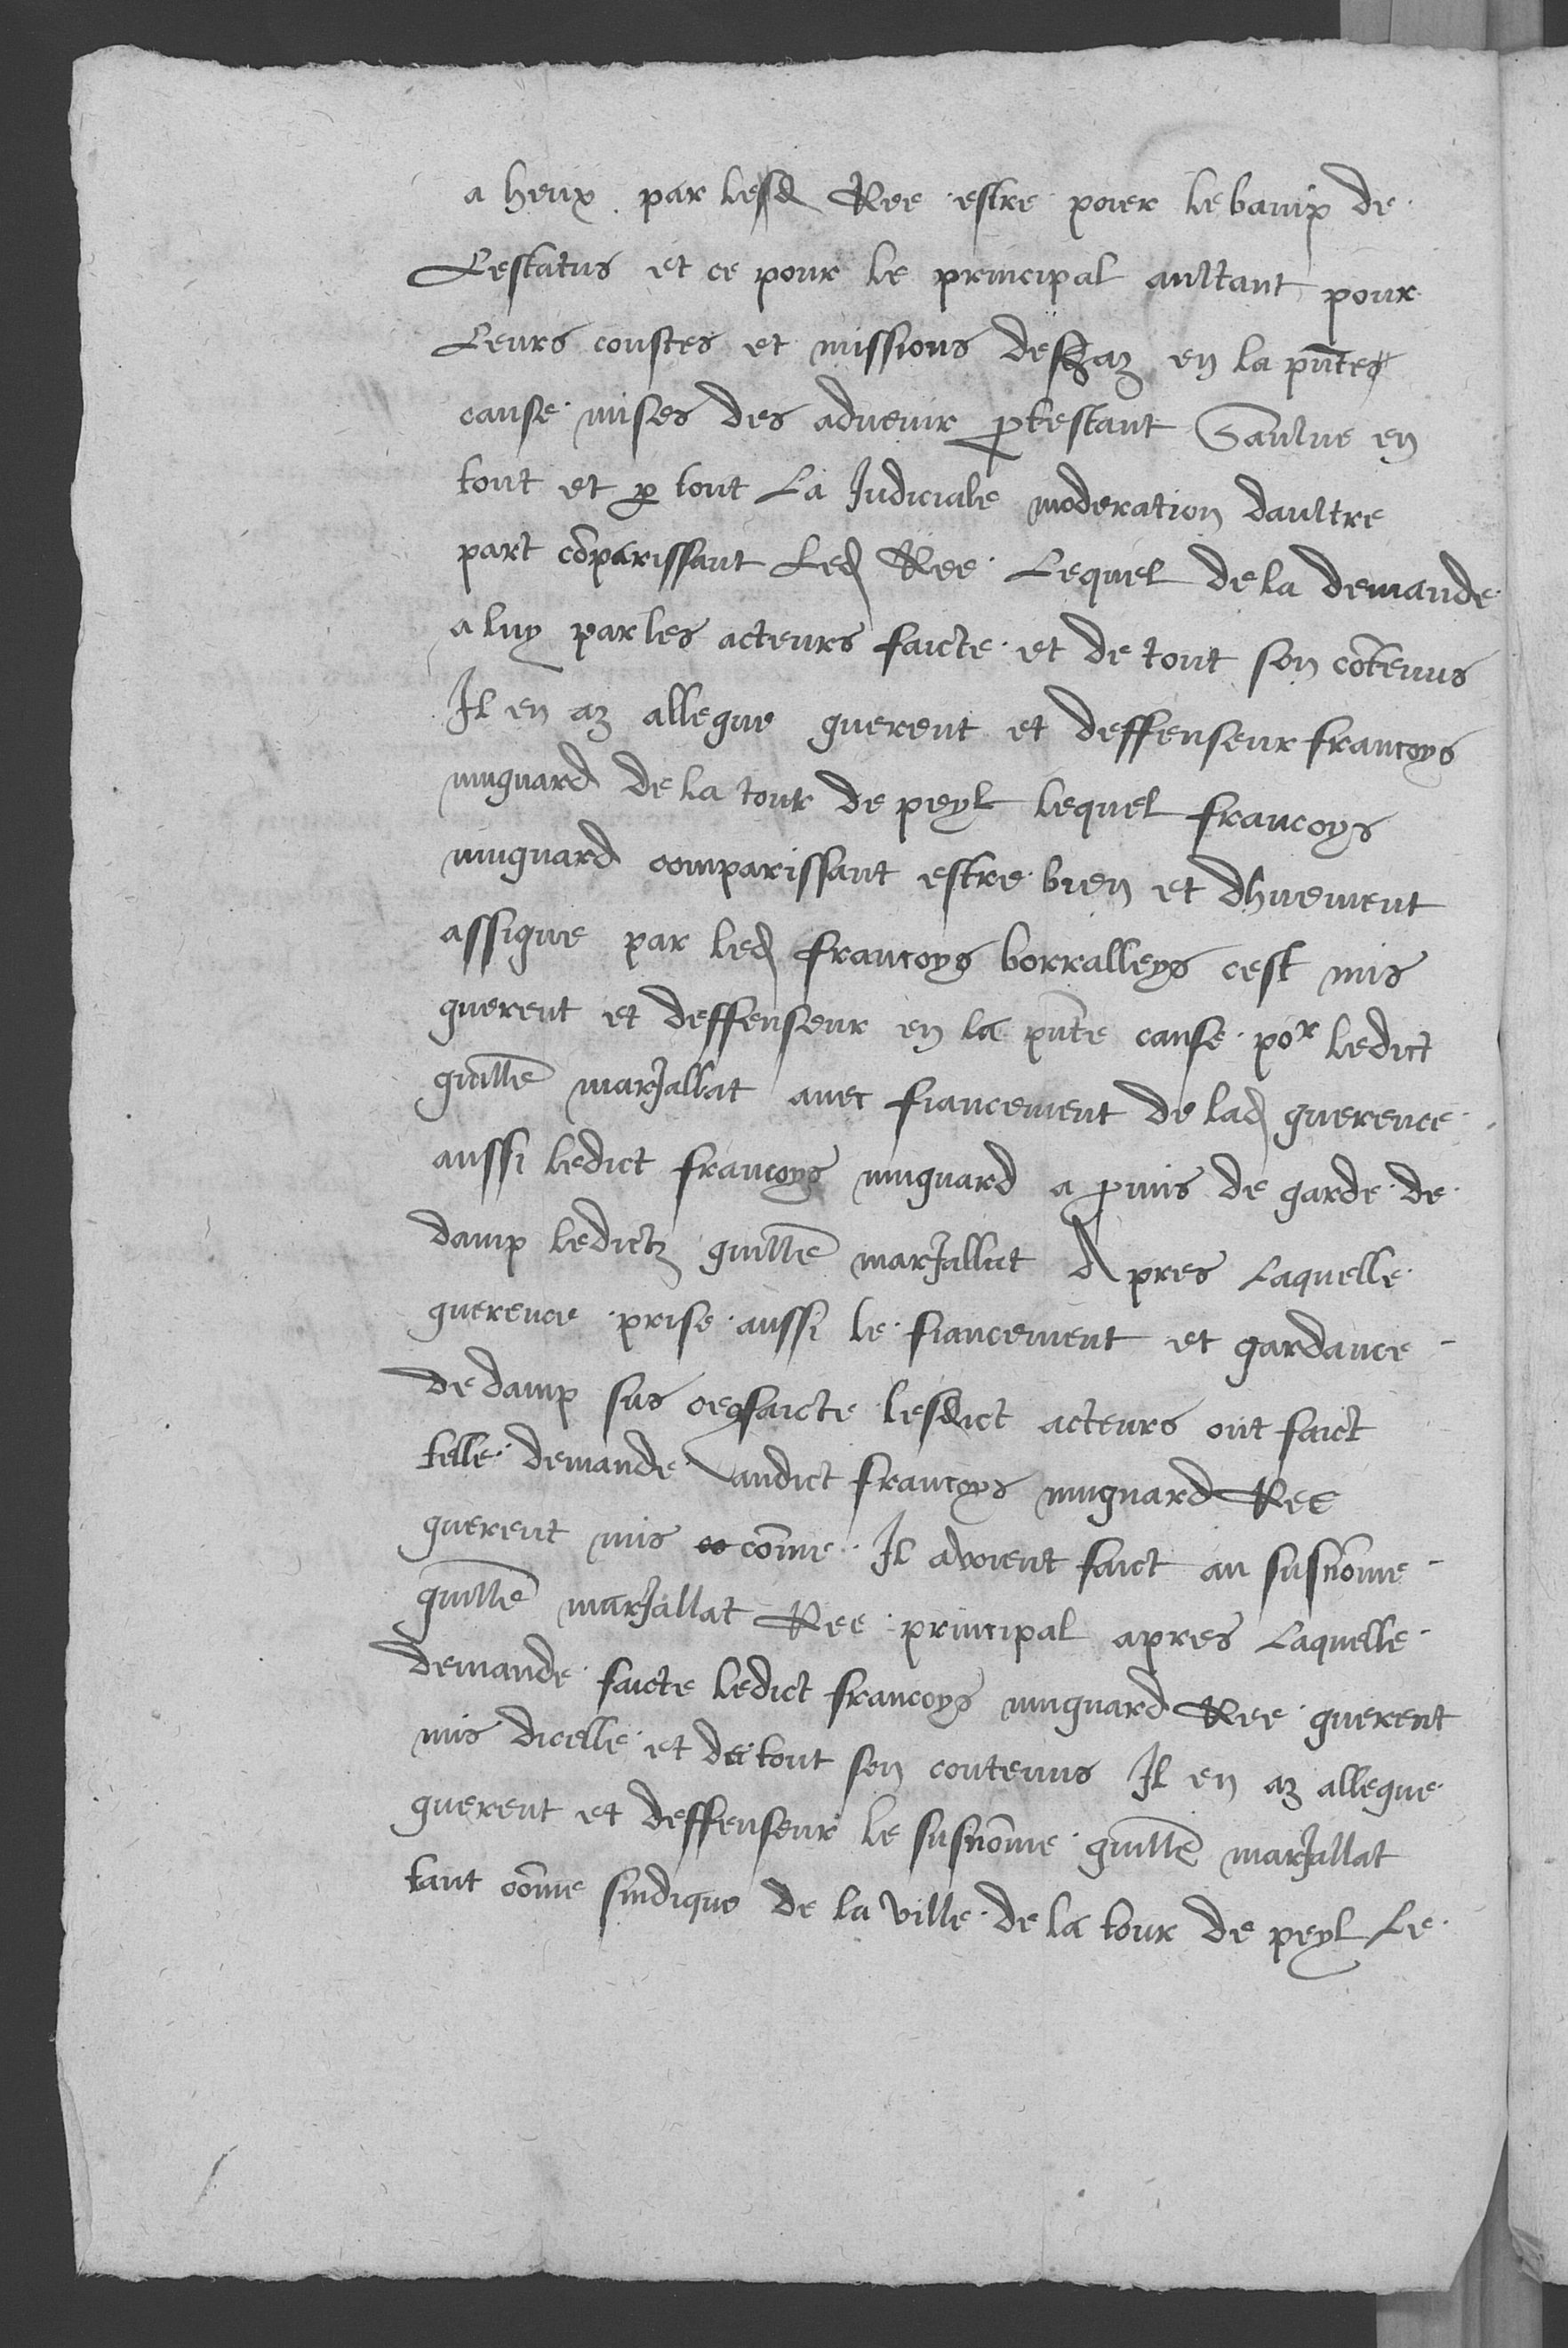 a heux par lesd Ree estre poier le bamp de
Lestatus et ce pour le principal aultant pour
Leurs coustes et missions deshaz en la pnte
cause mises des advenir ptestant Saulve en
tout et p tout La Judiciale moderation daultre
part comparissant Led Ree Lequel de la demande
a luy par les acteurs faicte et de tout son contenus
Il en az allegue guerent et deffenseur francoys
muguard de la tour de peyl lequel francoys
muguard comparissant estre bien et dhuement
assigne par led francoys borralleys cest mis
guerent et deffenseur en la pnte cause por ledict
guille marJallat avec fiancement de lad guerence
aussi ledict francoys muguard a pmis de garde de
damp ledictz guille marJallat Apres Laquelle
guerence prise aussi le fiancement et gardance
de damp sus ce faicte lesdict acteurs ont faict
telle demande audict francoys muguard Ree
guerent mis come Il avoient faict au susnome
guille marJallat Ree principal apres Laquelle
demande faicte ledict francoys muguard Ree guerent
mis dicelle et de tout son contenus Il en az allegue
guerent et deffenseur le susnome guille marJallat
tant come sindique de la ville de la tour de peyl Le